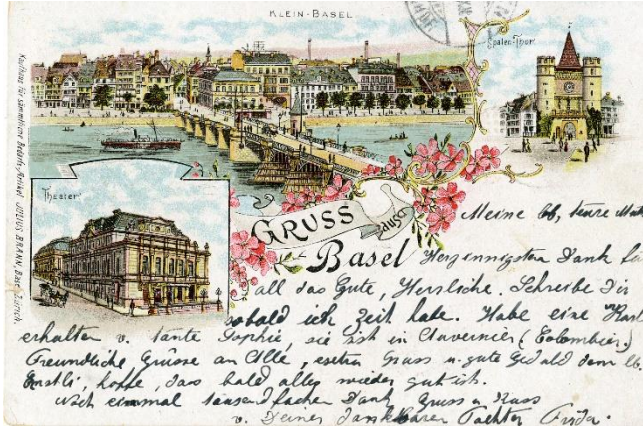 KLEIN-BASEL
Spalen-Thor
Theater
Kaufhaus für sämmtliche Bedarfs-Artikel JULIUS BRANN, Basel-Zürich.
GRUSS
aus
Basel
Meine lb, teure
Herzinnigsten Dank für
all das Gute, Herrliche. Schreibe Dir
sobald ich Zeit habe. Habe eine Karte
erhalten v. tante Sophie, sie ist in Auvernier (Colombier)
Freundliche Grüsse an Alle, Gruss u. gute dem lb.
hoffe, das bald alles wieder gut ist.
Noch einmal tausendfachen Dank, Gruss u Kuss
v. Deiner dankbaren Tochter Frida.